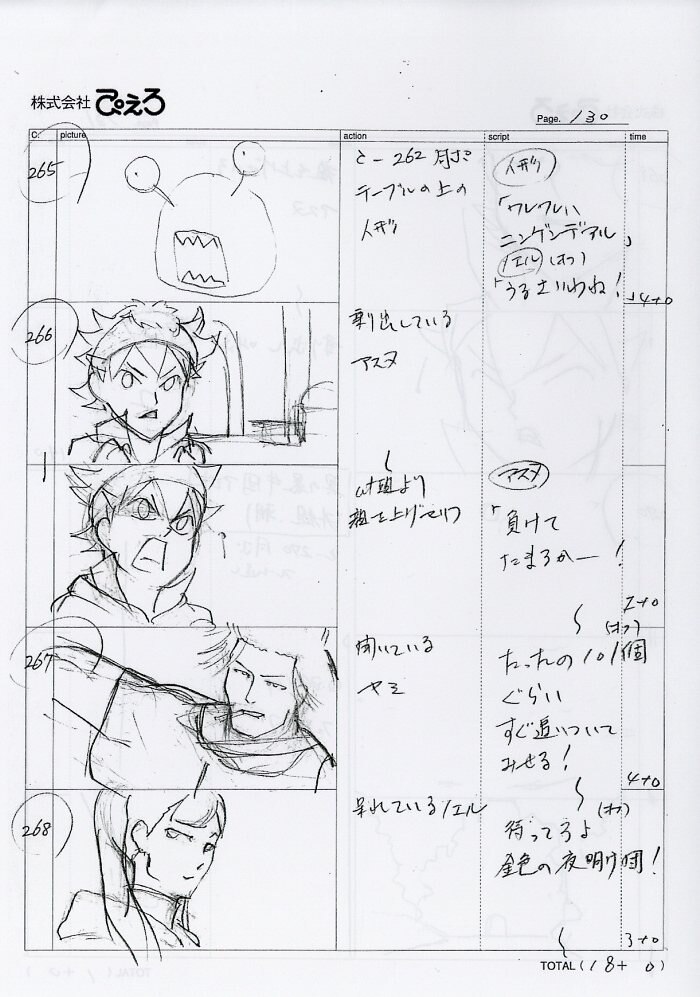 株式会社 ぴえろ
Page. 130
C. picture action script time
265
と-262 同ポ
テーブルの上の
人形
人形
「ワレワレハ
ニンゲンデアル」
ノエル(オフ)
「うるさいわね!」
4+0
266
アスタ
アスタ
「負けて
たまるかー!
2+0
267
聞いている
ヤミ
(オフ)
たったの101個
ぐらい
すぐ追いついて
みせる!
4+0
268
呆れているノエル
(オフ)
待ってろよ
金色の夜明け団!
3+0
TOTAL(18+0)